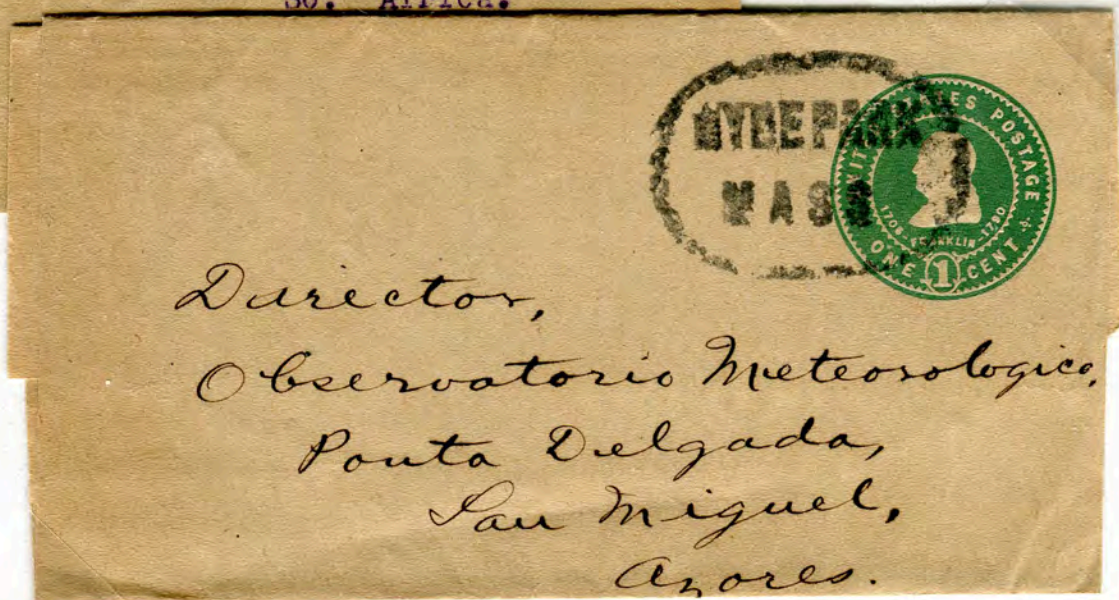 So. Africa.
HYDE PARK
MASS
UNITED STATES POSTAGE
1706-FRANKLIN-1790
ONE 1 CENT
Director,
Observatorio Meteorologico,
Ponta Delgada,
San Miguel,
Azores.